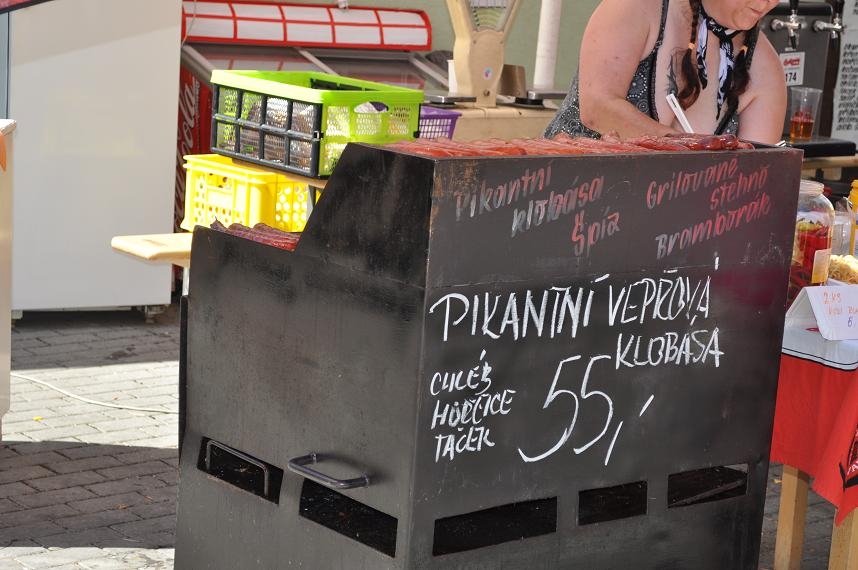 Pikantní
klobása
Špíz
Grilované
stehno
Bramborák
PIKANTNÍ VEPŘOVÁ
KLOBÁSA
CHLÉB
HOŘČICE
TÁCEK
55,-
174
2 KS